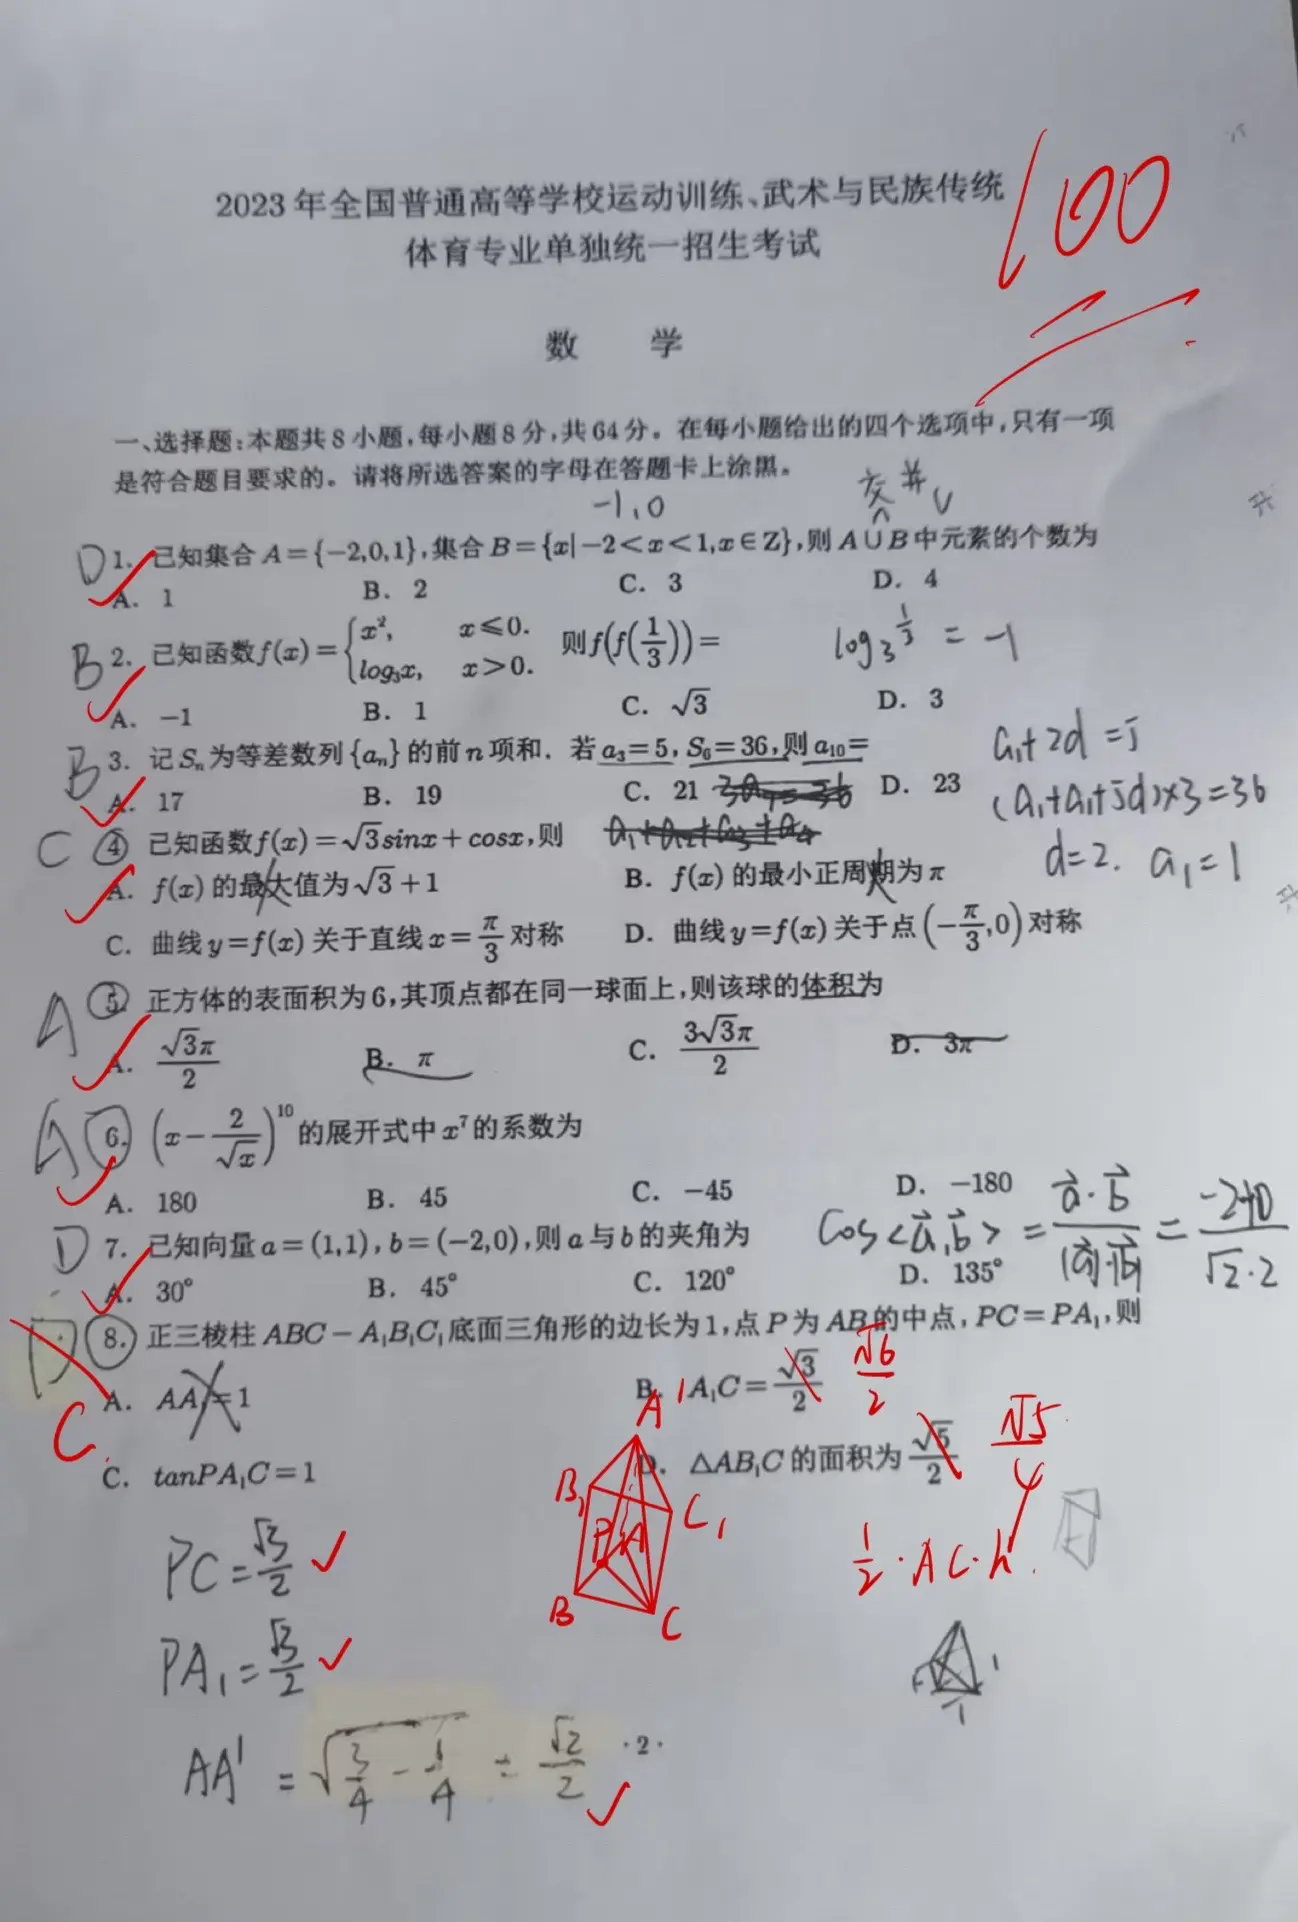 100
2023年全国普通高等学校运动训练、武术与民族传统
体育专业单独统一招生考试
数 学
一、选择题:本题共8小题,每小题8分,共64分。在每小题给出的四个选项中,只有一项
是符合题目要求的。请将所选答案的字母在答题卡上涂黑。
-1,0 交 并
∩ ∪
D 1. 已知集合A={-2,0,1},集合B={x|-2<x<1,x∈Z},则A∪B中元素的个数为
A. 1 B. 2 C. 3 D. 4
B 2. 已知函数f(x)={x², x≤0. log₃x, x>0. 则f(f(1/3))= log₃^(1/3) = -1
A. -1 B. 1 C. √3 D. 3
B 3. 记Sₙ为等差数列{aₙ}的前n项和. 若a₃=5,S₆=36,则a₁₀= a₁+2d=5
A. 17 B. 19 C. 21 D. 23 (a₁+a₁+5d)×3=36
C ④ 已知函数f(x)=√3sinx+cosx,则 d=2. a₁=1
A. f(x)的最大值为√3+1 B. f(x)的最小正周期为π
C. 曲线y=f(x)关于直线x=π/3对称 D. 曲线y=f(x)关于点(-π/3,0)对称
A 5. 正方体的表面积为6,其顶点都在同一球面上,则该球的体积为
A. √3π/2 B. π C. 3√3π/2 D. 3π
A 6. (x-2/√x)¹⁰的展开式中x⁷的系数为
A. 180 B. 45 C. -45 D. -180
D 7. 已知向量a=(1,1),b=(-2,0),则a与b的夹角为 cos<a⃗,b⃗> = a⃗·b⃗/|a⃗|·|b⃗| = -2+0/√2·2
A. 30° B. 45° C. 120° D. 135°
D 8. 正三棱柱ABC-A₁B₁C₁底面三角形的边长为1,点P为AB的中点,PC=PA₁,则
A. AA₁=1 B. A₁C=√3/2 √6/2
C
C. tanPA₁C=1 D. △AB₁C的面积为√5/2 √5/4
A'
B₁ C₁
P A
B C
1/2·AC·h
PC=√3/2
PA₁=√3/2
1
1
AA'=√(3/4-1/4)=√2/2
·2·